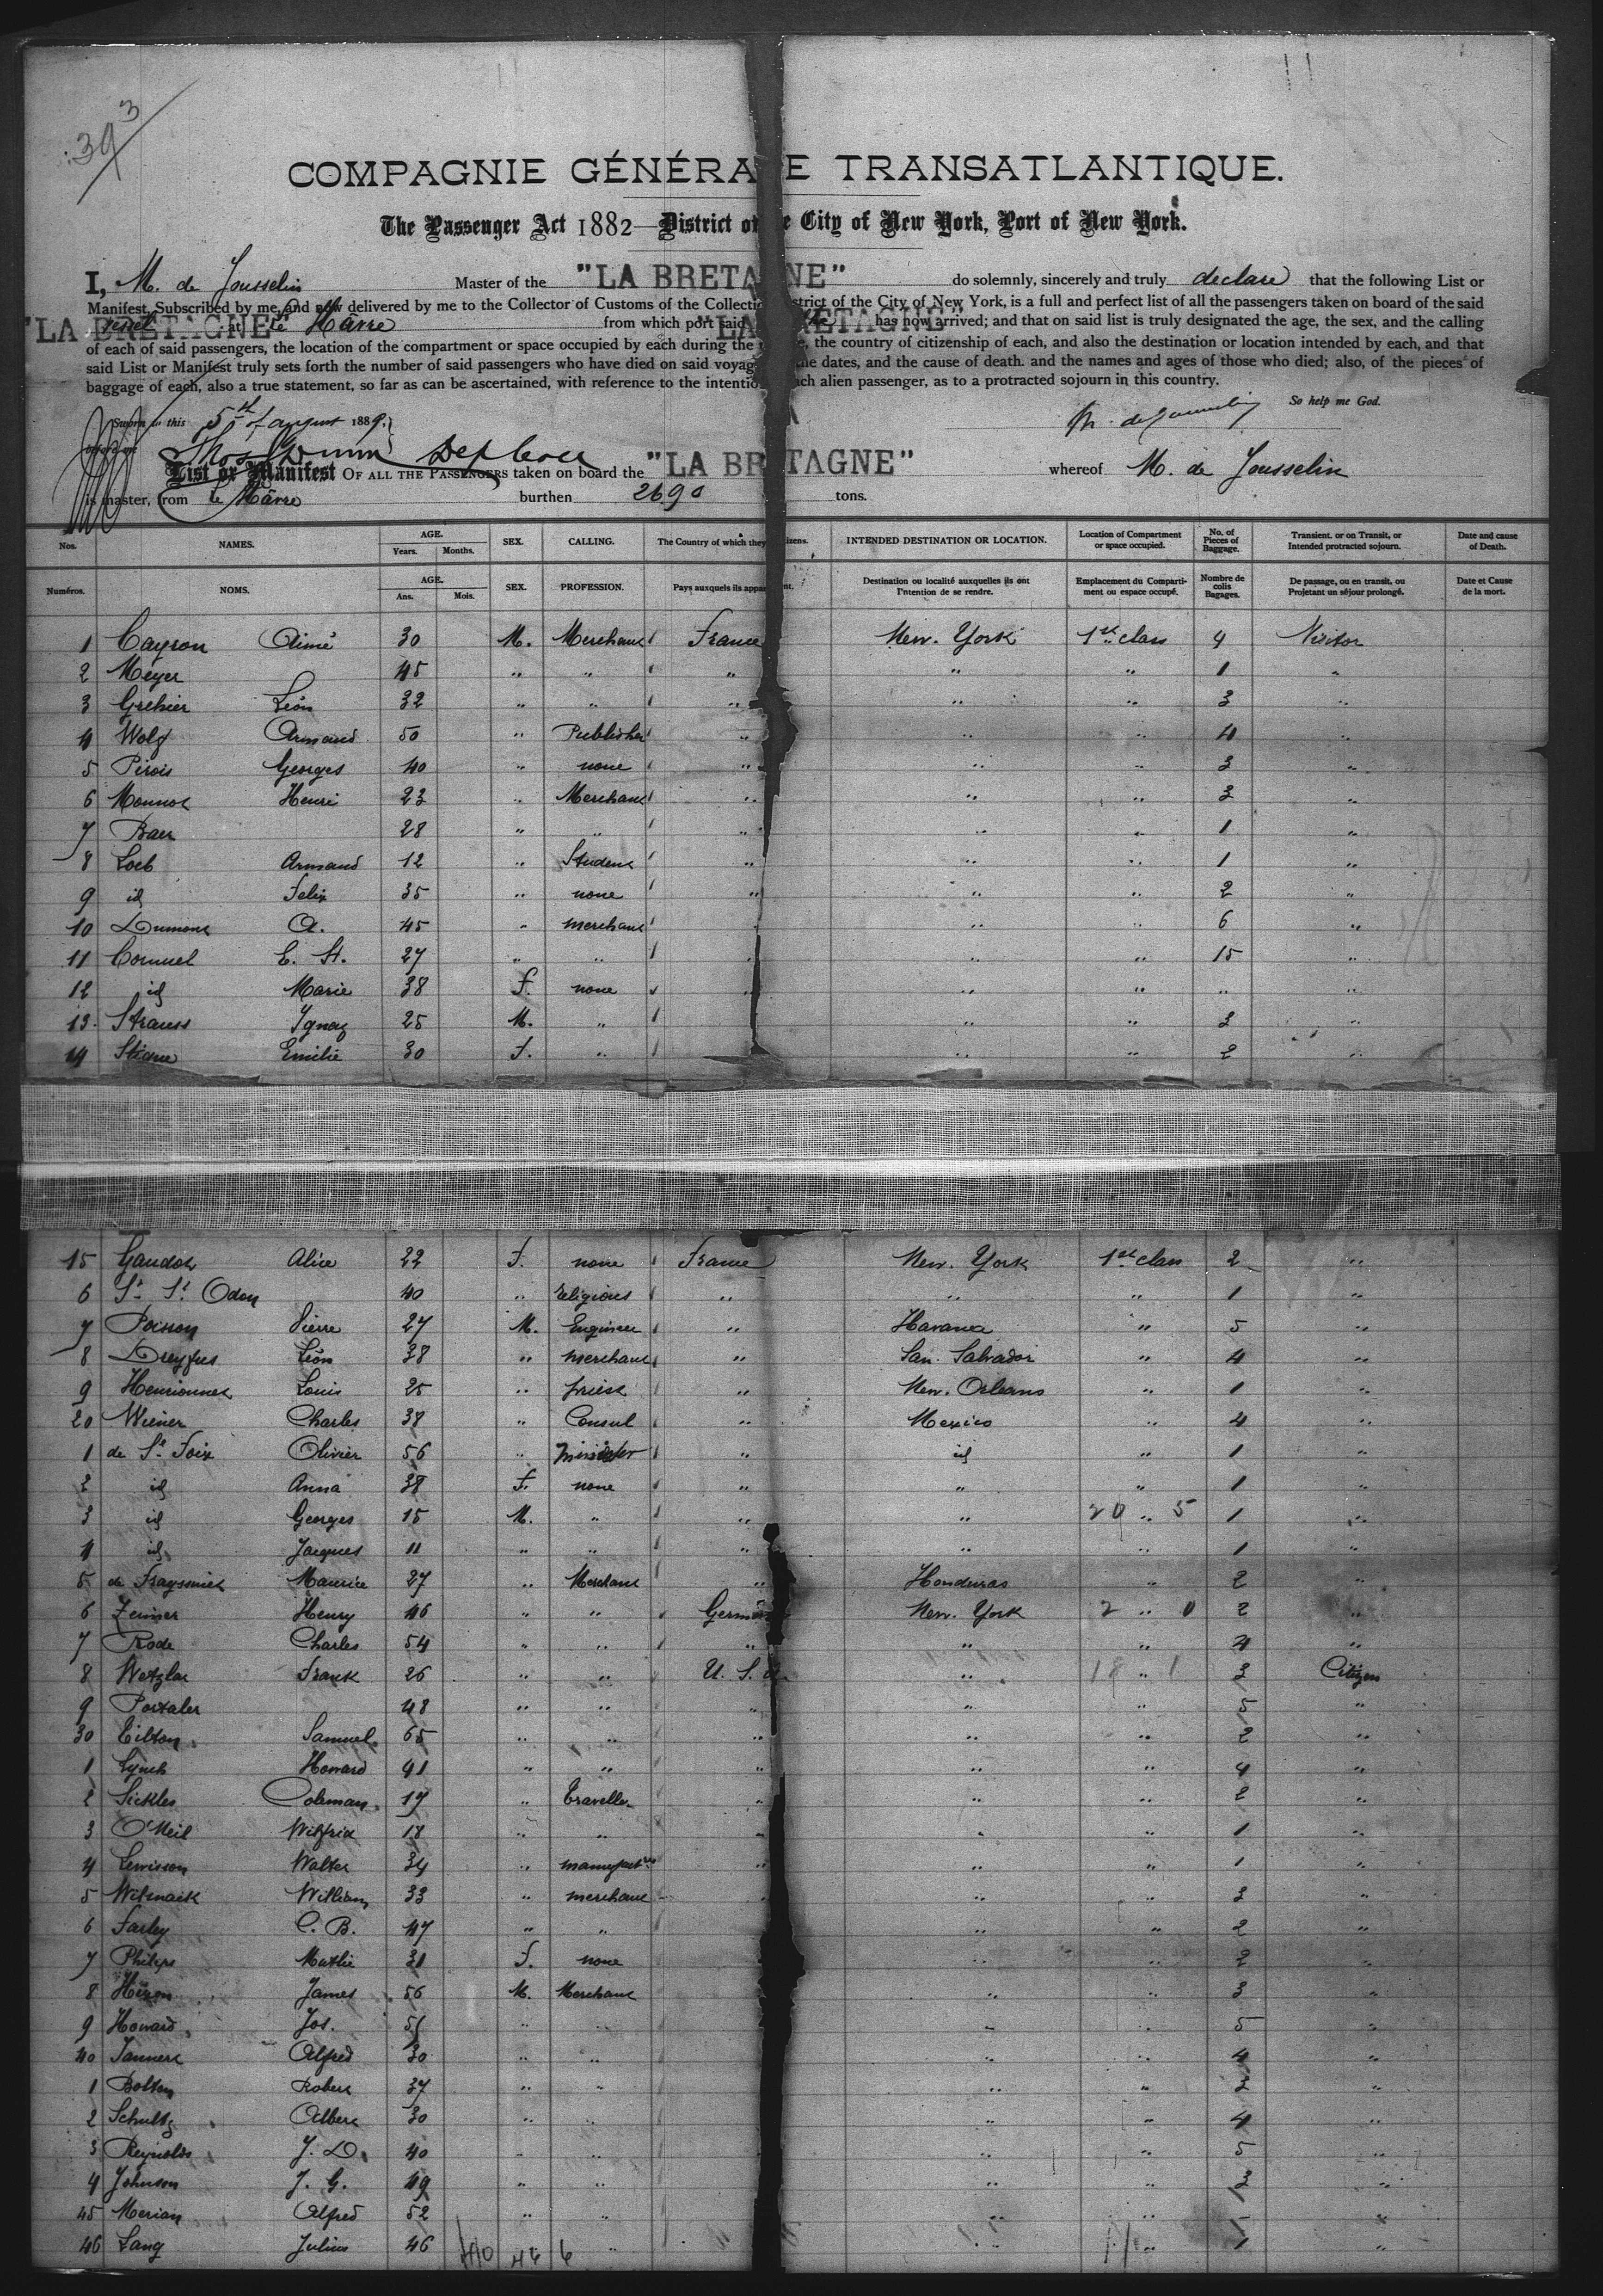 393
COMPAGNIE GÉNÉRA E TRANSATLANTIQUE.
The Passenger Act 1882—District of e City of New York, Port of New York.
I, M. de Jousselin Master of the "LA BRETAGNE" do solemnly, sincerely and truly declare that the following List or
Manifest, Subscribed by me, and now delivered by me to the Collector of Customs of the Collectio strict of the City of New York, is a full and perfect list of all the passengers taken on board of the said
"LA BRETAGNE" at le Hâvre from which port said "LA BRETAGNE" has now arrived; and that on said list is truly designated the age, the sex, and the calling
of each of said passengers, the location of the compartment or space occupied by each during the e, the country of citizenship of each, and also the destination or location intended by each, and that
said List or Manifest truly sets forth the number of said passengers who have died on said voyag the dates, and the cause of death. and the names and ages of those who died; also, of the pieces of
baggage of each, also a true statement, so far as can be ascertained, with reference to the intentio ach alien passenger, as to a protracted sojourn in this country.
So help me God.
Sworn to this 5th of august 1889. M. de Jousselin
before me Thos Dunn Dep Coll
List or Manifest OF ALL THE PASSENGERS taken on board the "LA BRETAGNE" whereof M. de Jousselin
is master, from le Hâvre burthen 2690 tons.
Nos. NAMES. AGE. Years. Months. SEX. CALLING. The Country of which they izens. INTENDED DESTINATION OR LOCATION. Location of Compartment or space occupied. No. of Pieces of Baggage. Transient. or on Transit, or Intended protracted sojourn. Date and cause of Death.
Numéros. NOMS. AGE. Ans. Mois. SEX. PROFESSION. Pays auxquels ils appar nt. Destination ou localité auxquelles ils ont l'intention de se rendre. Emplacement du Comparti-ment ou espace occupé. Nombre de colis Bagages. De passage, ou en transit, ou Projetant un séjour prolongé. Date et Cause de la mort.
1 Cayron Aimé 30 M. Merchant France New. York 1st class 4 Visitor
2 Meyer 45 " " " " " 1 "
3 Grehier Léon 32 " " " " " 3 "
4 Wolf Armand 50 " Publisher " " " 4 "
5 Pirois Georges 40 " none " " " 3 "
6 Monnot Henri 23 " Merchant " " " 3 "
7 Baer 28 " " " " " 1 "
8 Loeb Armand 12 " Student " " " 1 "
9 id Felix 35 " none " " " 2 "
10 Dumont A. 45 " merchant " " 6 "
11 Cornuel E. St. 27 " " " " " 15 "
12 id Marie 38 F. none " " " " "
13. Strauss Ygnaz 25 M. " " " 3 "
14 Stiane Emilie 30 F. " " " 2 "
15 Gaudot Alice 22 F. none France New. York 1st class 2 "
6 Sr St Odon 40 " religious " " " 1 "
7 Poisson Pierre 27 M. Engineer " Havana " 5 "
8 Dreyfus Léon 38 " merchant " San. Salvador " 4 "
9 Henrionnet Louis 25 " priest " New. Orleans " 1 "
20 Wiener Charles 38 " Consul " Mexico " 4 "
1 de St Foix Olivier 56 " minister " id " 1 "
2 id Anna 38 F. none " " " 1 "
3 id Georges 15 M. " " " 20 " 5 1 "
4 id Jacques 11 " " " " " 1 "
5 de Frayssinet Maurice 27 " Merchant " Honduras " 2 "
6 Zeimer Henry 46 " " German New. York 2 " 0 2 "
7 Rode Charles 54 " " " " " 4 "
8 Wetzlar Frank 26 " " U. S. A. " 18 " 1 3 Citizen
9 Portaler 48 " " " " " 5 "
30 Tilton Samuel 65 " " " " " 2 "
1 Lynch Howard 41 " " " " " 4 "
2 Sickles Coleman 17 " Traveller " " " 2 "
3 O'Neil Wilfrid 18 " " " " " 1 "
4 Lewisson Walter 34 " manufactrer " " " 1 "
5 Witmark William 33 " merchant " " " 3 "
6 Farley C. B. 47 " " " " 2 "
7 Philips Mathie 31 F. none " " 2 "
8 Hixon James 56 M. Merchant " " 3 "
9 Howard Jos. 55 " " " " 5 "
40 Tannert Alfred 30 " " " " 4 "
1 Bolton Robert 37 " " " " 3 "
2 Schultz Albert 30 " " " " 4 "
3 Reynolds J. D. 40 " " " " 5 "
4 Johnson J. G. 49 " " " " 3 "
45 Merian Alfred 52 " " " " 1 "
46 Lang Julius 46 " " " 1 "